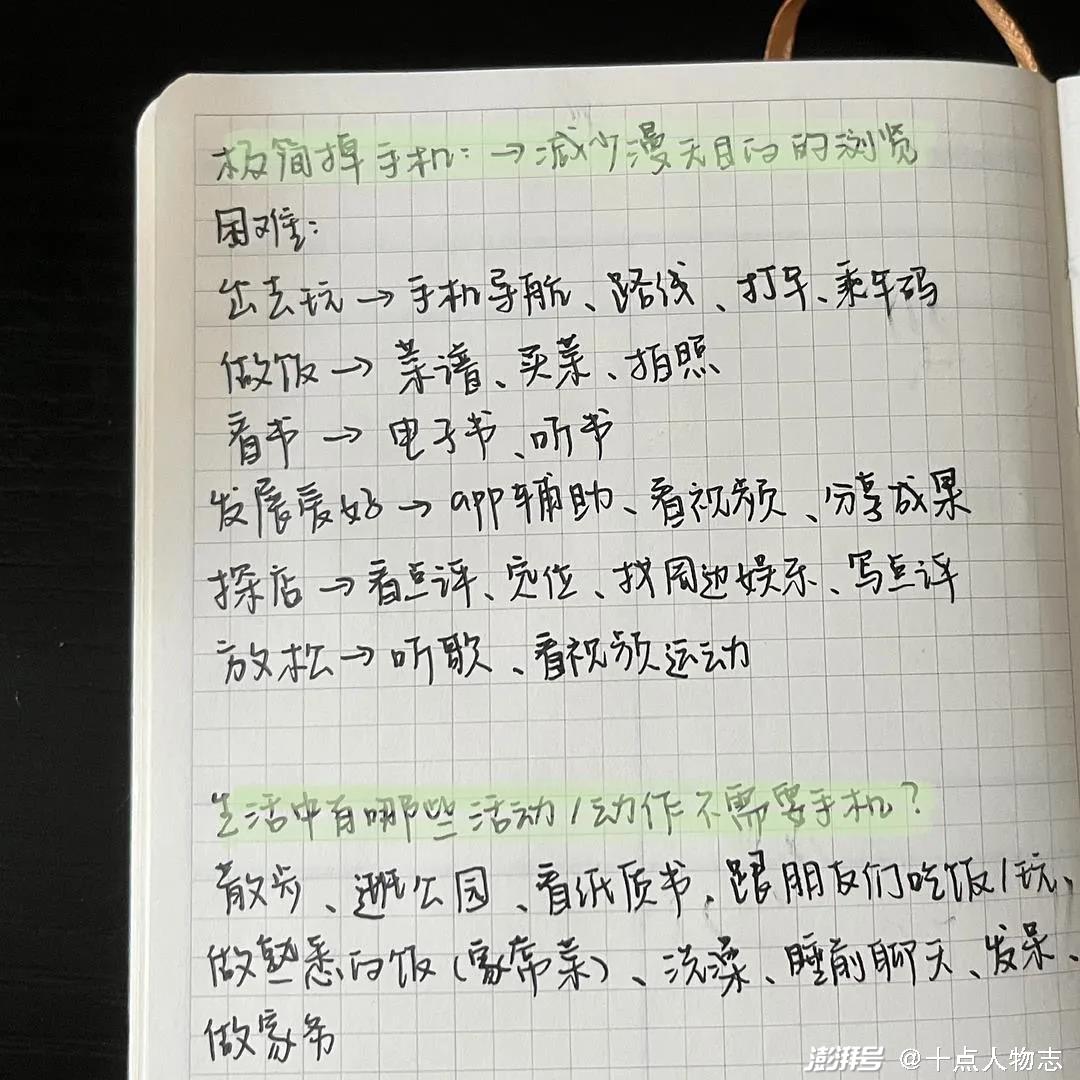 极简掉手机:→减少漫无目的的浏览
困难:
出去玩→手机导航、路线、打车、乘车码
做饭→菜谱、买菜、拍照
看书→电子书、听书
发展爱好→app辅助、看视频、分享成果
探店→看点评、定位、找周边娱乐、写点评
放松→听歌、看视频运动
生活中有哪些活动/动作不需要手机?
散步、逛公园、看纸质书、跟朋友们吃饭/玩、
做熟悉的饭(家常菜)、洗澡、睡前聊天、发呆、
做家务
澎湃号 @十点人物志